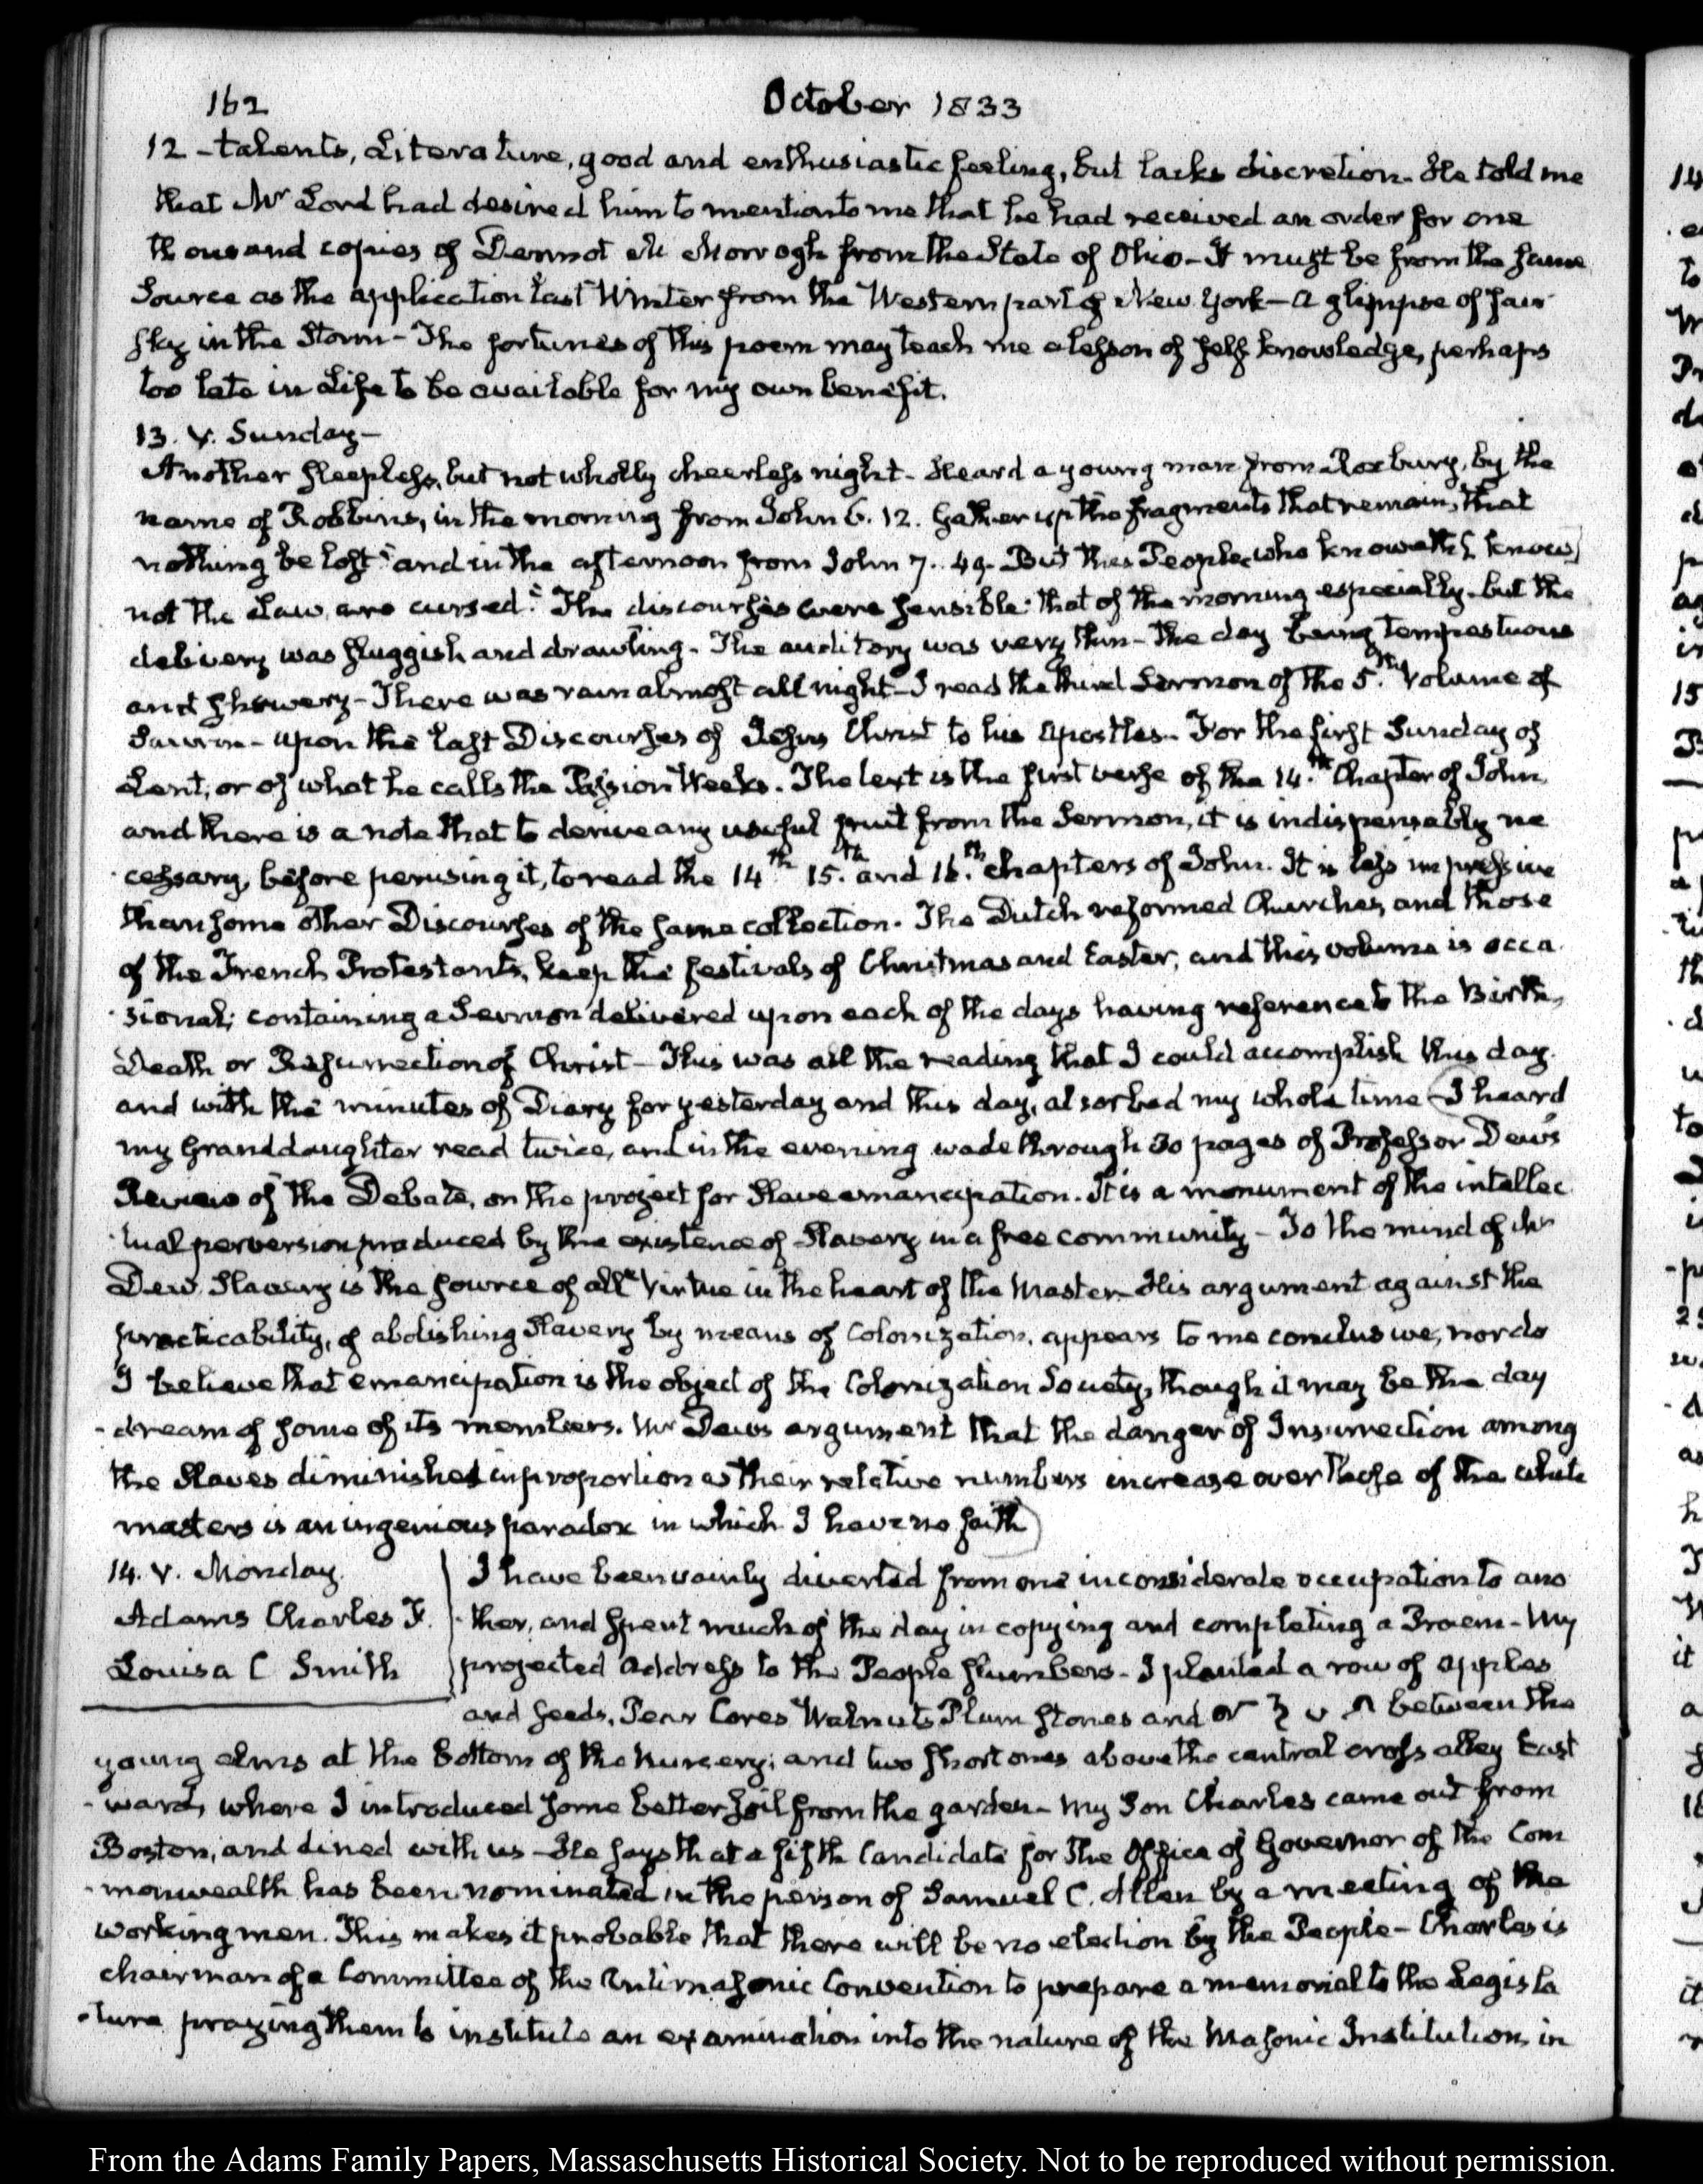 162 October 1833
12 - talents, Literature, good and enthusiastic feeling, but lacks discretion. He told me
that Mr Lord had desired him to mention to me that he had received an order for one
thousand copies of Dermot Mc Morrogh from the State of Ohio - It must be from the same
Source as the application last Winter from the Western part of New York - a glimpse of fair
sky in the Storm - The fortunes of this poem may teach me a lesson of self knowledge, perhaps
too late in Life to be available for my own benefit.
13. V. Sunday -
Another sleepless, but not wholly cheerless night - Heard a young man from Roxbury, by the
name of Robbins, in the morning from John 6. 12. Gather up the fragments that remain, that
nothing be lost" and in the afternoon from John 7. 49. But this People who knoweth [know]
not the Law, are cursed." The discourses were sensible: that of the morning especially - but the
delivery was sluggish and drawling - The auditory was very thin - The day being tempestuous
and showery - There was rain almost all night - I read the third Sermon of the 5.th Volume of
Saurin - upon the last Discourses of Jesus Christ to his Apostles - For the first Sunday of
Lent, or of what he calls the Passion Weeks. The text is the first verse of the 14.th Chapter of John,
and there is a note that to derive any useful fruit from the Sermon, it is indispensably ne
cessary, before perusing it, to read the 14th 15.th and 16.th chapters of John. It is less impressive
than some other Discourses of the same collection. The Dutch reformed Churches, and those
of the French Protestants, keep the festivals of Christmas and Easter, and this volume is occa
-sional; containing a Sermon delivered upon each of the days having reference to the Birth,
Death or Resurrection of Christ - This was all the reading that I could accomplish this day.
and with the minutes of Diary for yesterday and this day, absorbed my whole time (I heard
my Granddaughter read twice, and in the evening wade through 30 pages of Professor Dew's
Review of the Debate, on the project for Slave emancipation. It is a monument of the intellec
-tual perversion produced by the existence of Slavery in a free community - To the mind of Mr
Dew Slavery is the source of all Virtue in the heart of the Master - His argument against the
practicability, of abolishing Slavery by means of Colonization, appears to me conclusive, nor do
I believe that emancipation is the object of the Colonization Society, though it may be the day
-dream of some of its members. Mr Dew's argument that the danger of Insurrection among
the Slaves diminished in proportion as their relative numbers increase over those of the white
masters is an ingenious paradox in which I have no faith)
14. V. Monday.
Adams Charles F.
Louisa C Smith
I have been vainly diverted from one inconsiderate occupation to ano
-ther, and spent much of the day in copying and completing a Proem - My
projected Address to the People slumbers - I planted a row of apples
and seeds, Pear Cores Walnuts Plum stones and between the
young elms at the bottom of the Nursery; and two short ones above the central cross alley East
-ward, where I introduced some better soil from the garden - My Son Charles came out from
Boston, and dined with us - He says that a fifth Candidate for the Office of Governor of the Com
-monwealth has been nominated in the person of Samuel C. Allen by a meeting of the
working men. This makes it probable that there will be no election by the People - Charles is
chairman of a Committee of the Antimasonic Convention to prepare a memorial to the Legisla
-ture praying them to institute an examination into the nature of the Masonic Institution, in
From the Adams Family Papers, Massachusetts Historical Society. Not to be reproduced without permission.